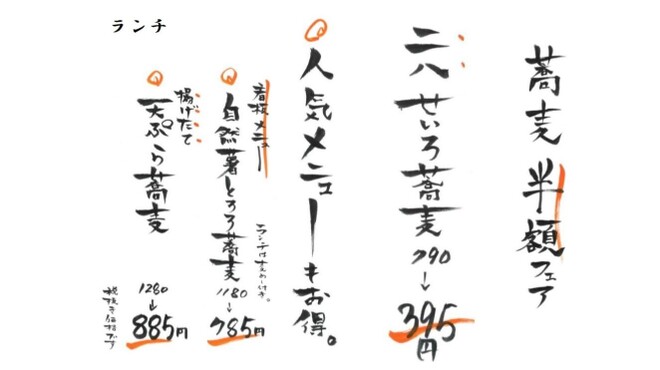 ランチ
蕎麦半額フェア
二八せいろ蕎麦
790
↓
395円
人気メニューもお得。
看板メニュー
自然薯とろろ蕎麦
1180
↓
785円
揚げたて
天ぷら蕎麦
1280
↓
885円
税抜き価格です